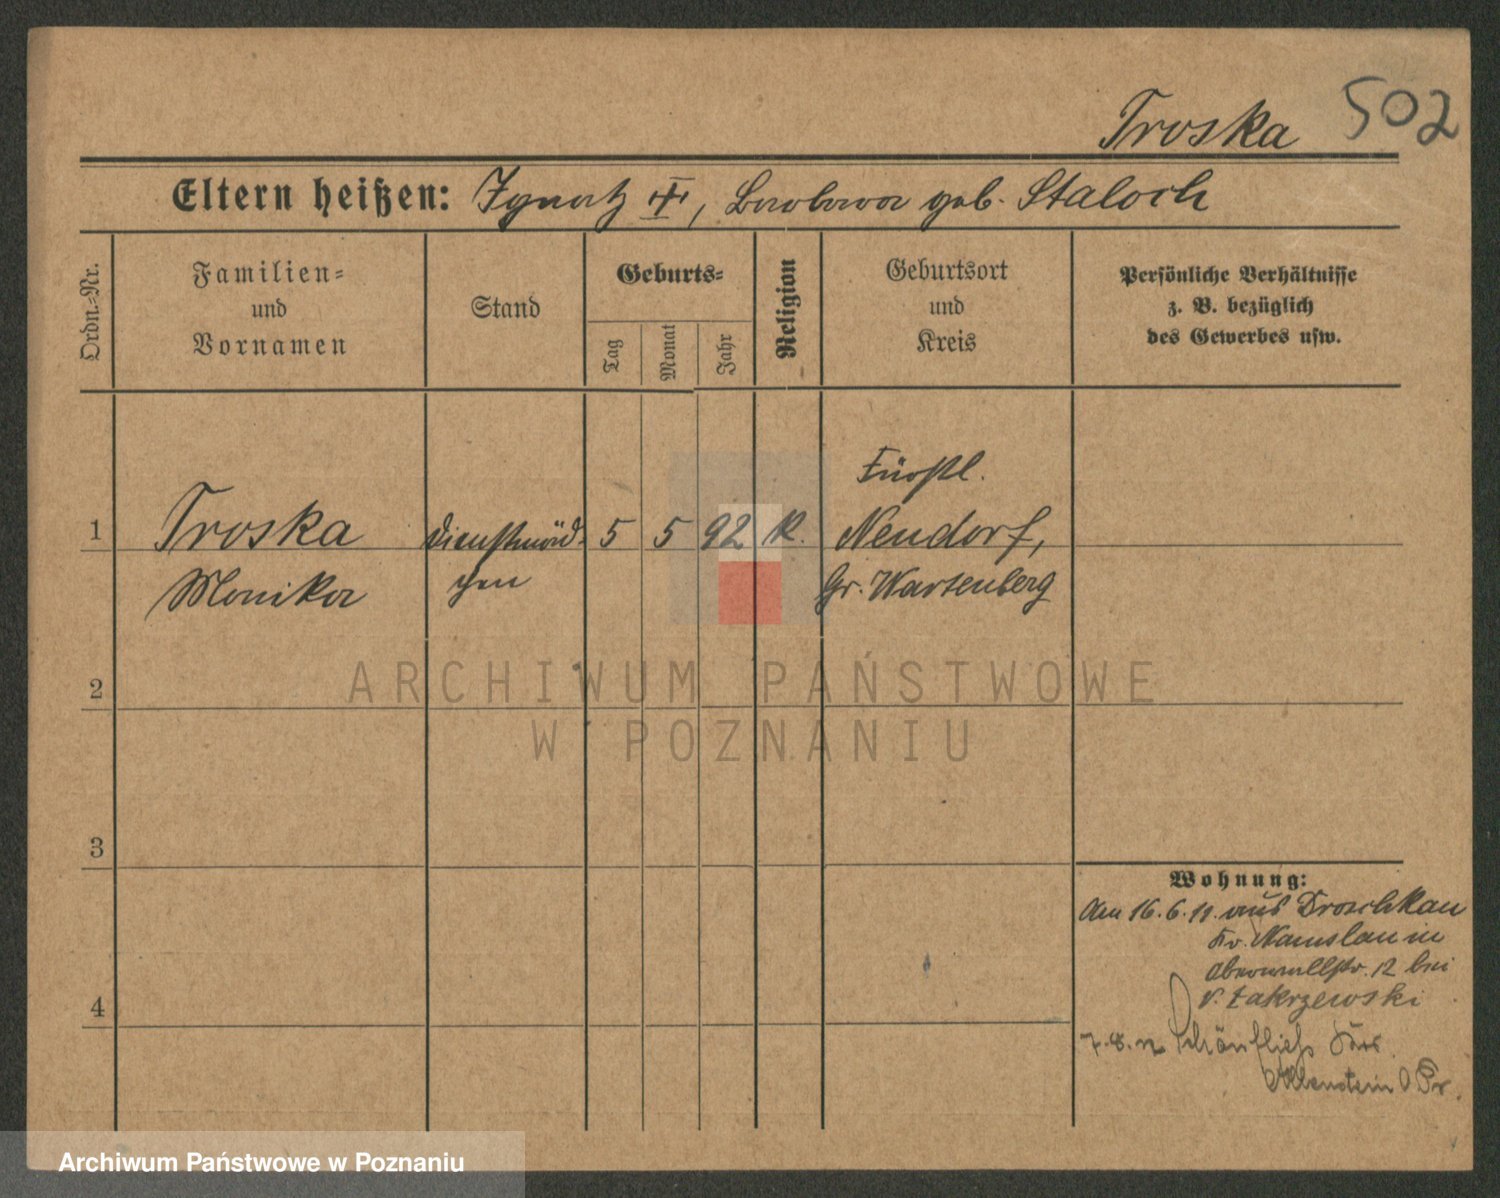 Troska 502
Eltern heißen: Ignatz ✝, Barbara geb. Staloch
Ordn.=Nr.
Familien=
und
Vornamen
Stand
Geburts=
Tag
Monat
Jahr
Religion
Geburtsort
und
Kreis
Persönliche Verhältnisse
z. B. bezüglich
des Gewerbes usw.
1
Troska
Monika
Dienstmäd-
chen
5 5 92 K.
Fürstl.
Neudorf,
Gr. Wartenberg
2
3
4
Wohnung:
Am 16.6.11. aus Droschkau
Kr. Namslau in
Oberwallstr. 12 bei
v. Zakrzewski
7.8.12 Schönfließ Krs.
Allenstein O Pr.
ARCHIWUM PAŃSTWOWE
W POZNANIU
Archiwum Państwowe w Poznaniu